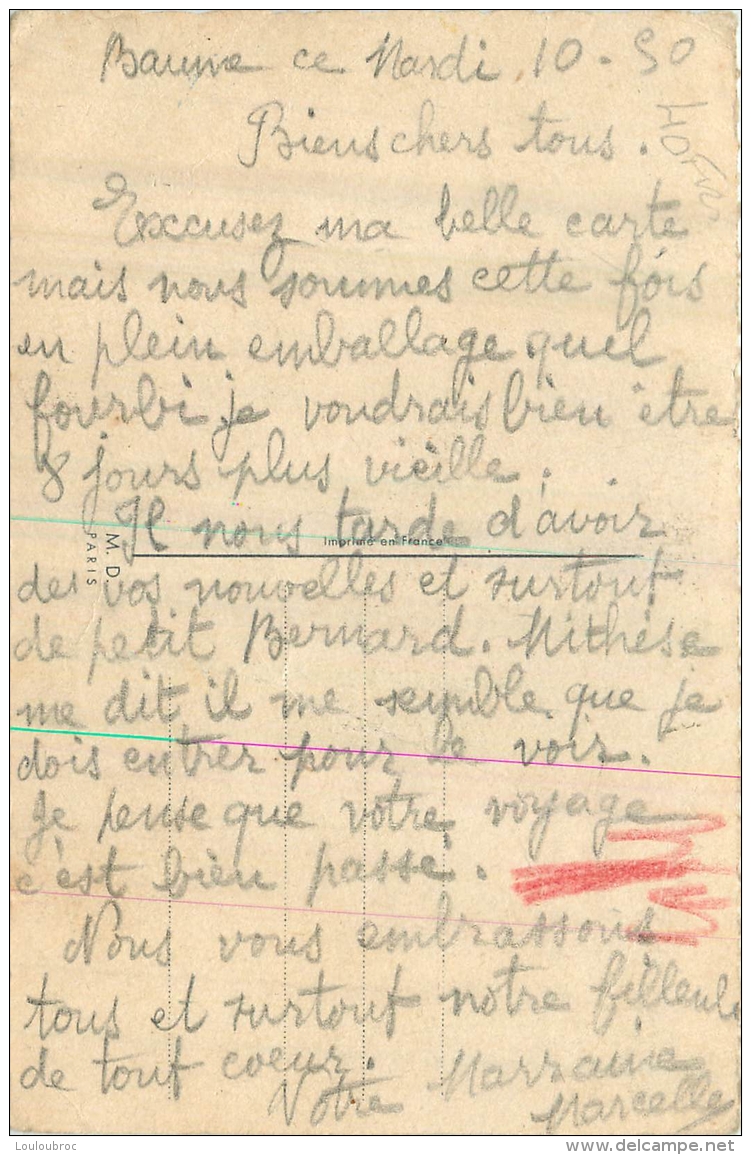 Baume ce Mardi 10 - 50
Biens chers tous.
Excusez ma belle carte
mais nous sommes cette fois
en plein emballage quel
fourbi, je voudrais bien être
8 jours plus vieille.
Il nous tarde d'avoir
Imprimé en France
M. D.
PARIS
des vos nouvelles et surtout
de petit Bernard. Mithèse
me dit il me semble que je
dois entrer pour le voir.
Je pense que votre voyage
c'est bien passé.
Nous vous embrassons
tous et surtout notre filleule
de tout coeur.
Votre Marraine
Marcelle
Louloubroc
www.delcampe.net